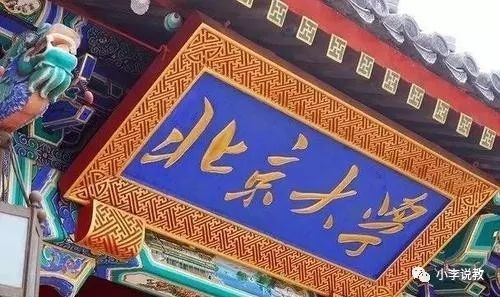 北京大学
小李说教